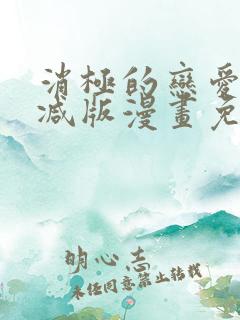 消極的戀愛
减版漫畫免
明心志
未任同意禁止转载